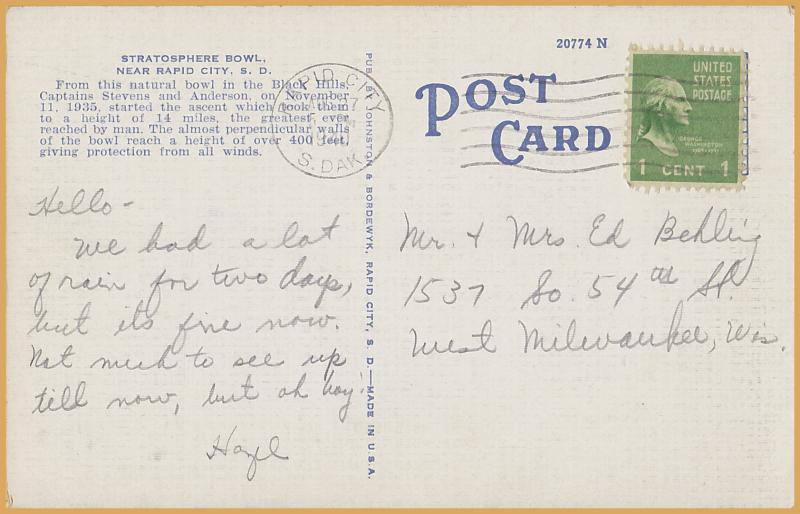 20774 N
STRATOSPHERE BOWL,
NEAR RAPID CITY, S. D.
From this natural bowl in the Black Hills,
Captains Stevens and Anderson, on November
11, 1935, started the ascent which took them
to a height of 14 miles, the greatest ever
reached by man. The almost perpendicular walls
of the bowl reach a height of over 400 feet,
giving protection from all winds.
RAPID CITY
S. DAK.
POST
CARD
UNITED
STATES
POSTAGE
GEORGE
WASHINGTON
1 CENT 1
PUB. BY JOHNSTON & BORDEWYK, RAPID CITY, S. D.—MADE IN U.S.A.
Hello-
We had a lot
of rain for two days,
but its fine now.
Not much to see up
till now, but oh boy!
Hazel
Mr. & Mrs. Ed Behling
1537 So. 54th St.
West Milwaukee, Wis.